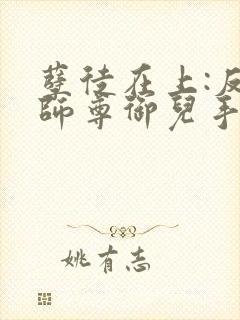 孽徒在上:反
师尊御儿手
姚有志